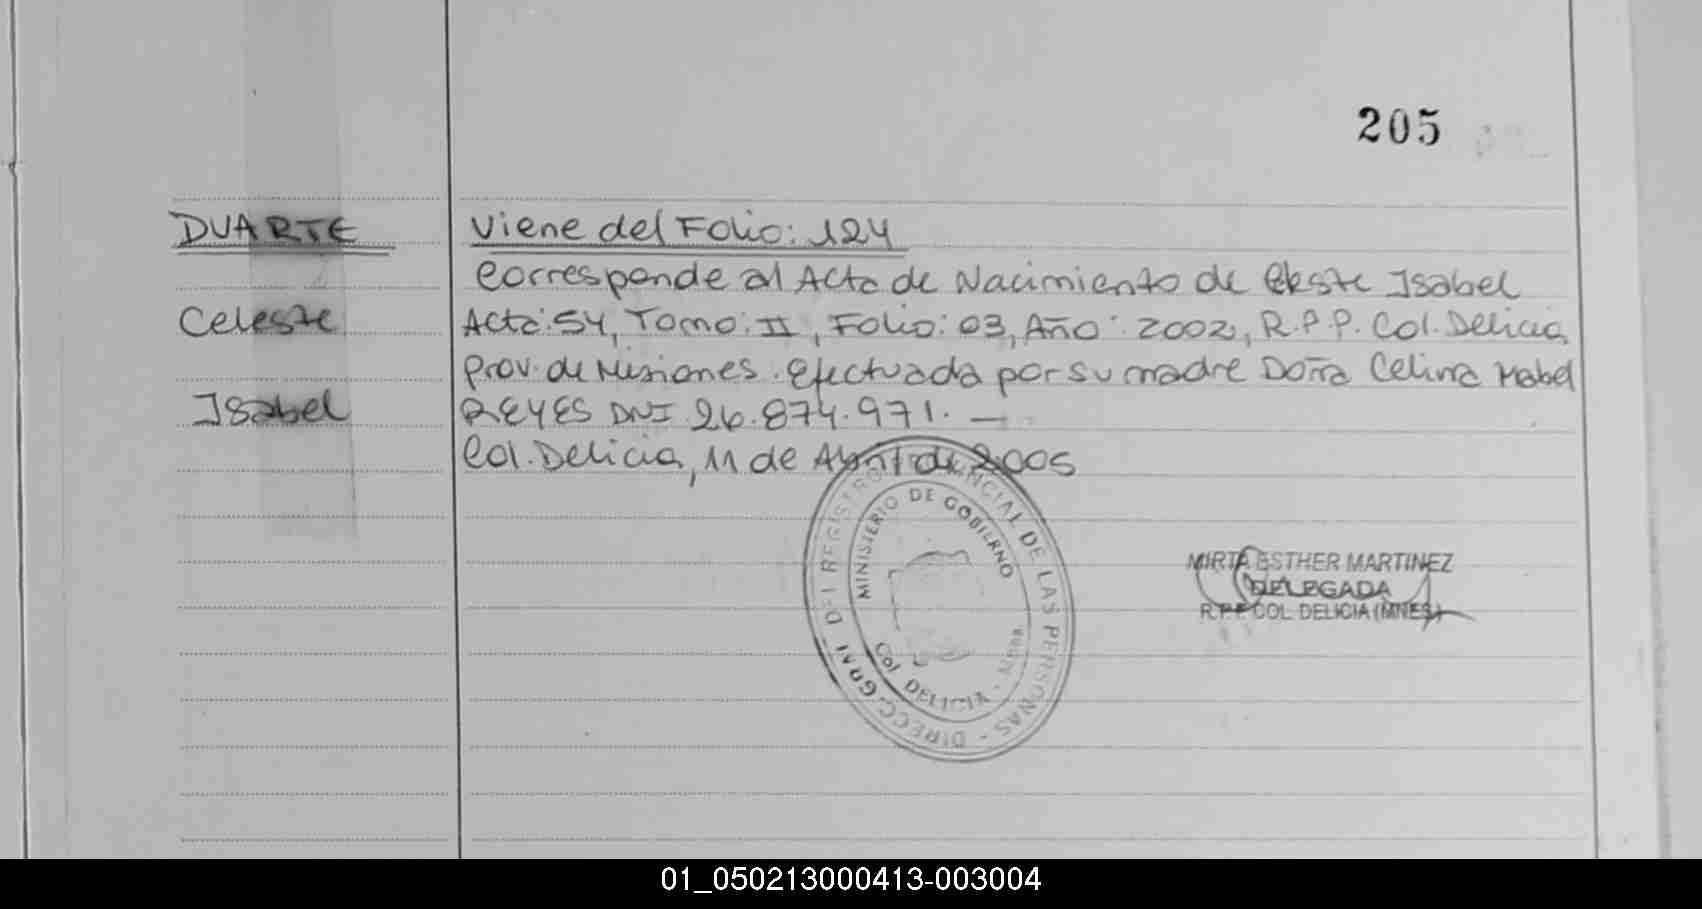 205
DUARTE
Viene del Folio: 124
Corresponde al Acta de Nacimiento de Celeste Isabel
Celeste
Acta: 54, Tomo: II, Folio: 03, Año: 2002, R.P.P. Col. Delicia
Prov. de Misiones. Efectuada por su madre Doña Celina Mabel
Isabel
REYES DNI. 26.874.971. —
Col. Delicia, 11 de Abril de 2005
DIRECC. GRAL DEL REGISTRO PROVINCIAL DE LAS PERSONAS -
MINISTERIO DE GOBIERNO
Col DELICIA -
MIRTA ESTHER MARTINEZ
DELEGADA
R.P.P COL DELICIA (MNES)
01_050213000413-003004